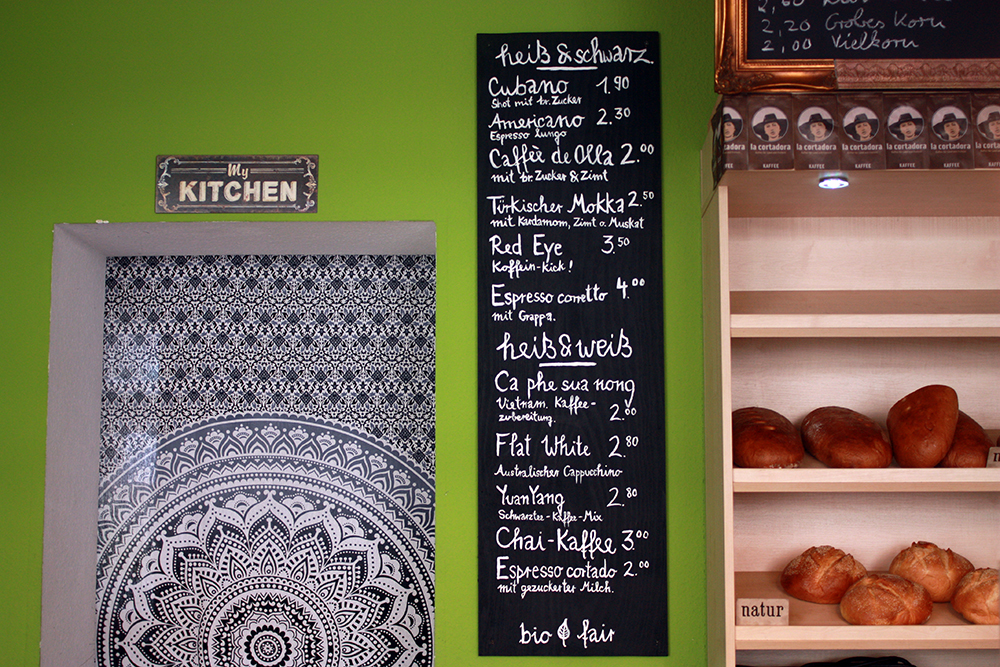 2,20 Grobes Korn
2,00 Vielkorn
My
KITCHEN
heiß & schwarz.
Cubano 1.90
Shot mit br. Zucker
Americano 2.30
Espresso lungo
Caffèe de Olla 2.00
mit br. Zucker & Zimt
Türkischer Mokka 2.50
mit Kardamom, Zimt o. Muskat
Red Eye 3.50
Koffein-Kick!
Espresso corretto 4.00
mit Grappa.
heiß & weiß
Ca phe sua nong
Vietnam. Kaffee-
zubereitung. 2.00
Flat White 2.80
Australischer Cappucchino
YuanYang 2.80
Schwarztee-Kaffee-Mix
Chai-Kaffee 3.00
Espresso cortado 2.00
mit gezuckerter Milch.
bio fair
la cortadora
KAFFEE
la cortadora
KAFFEE
la cortadora
KAFFEE
la cortadora
KAFFEE
la cortadora
KAFFEE
natur